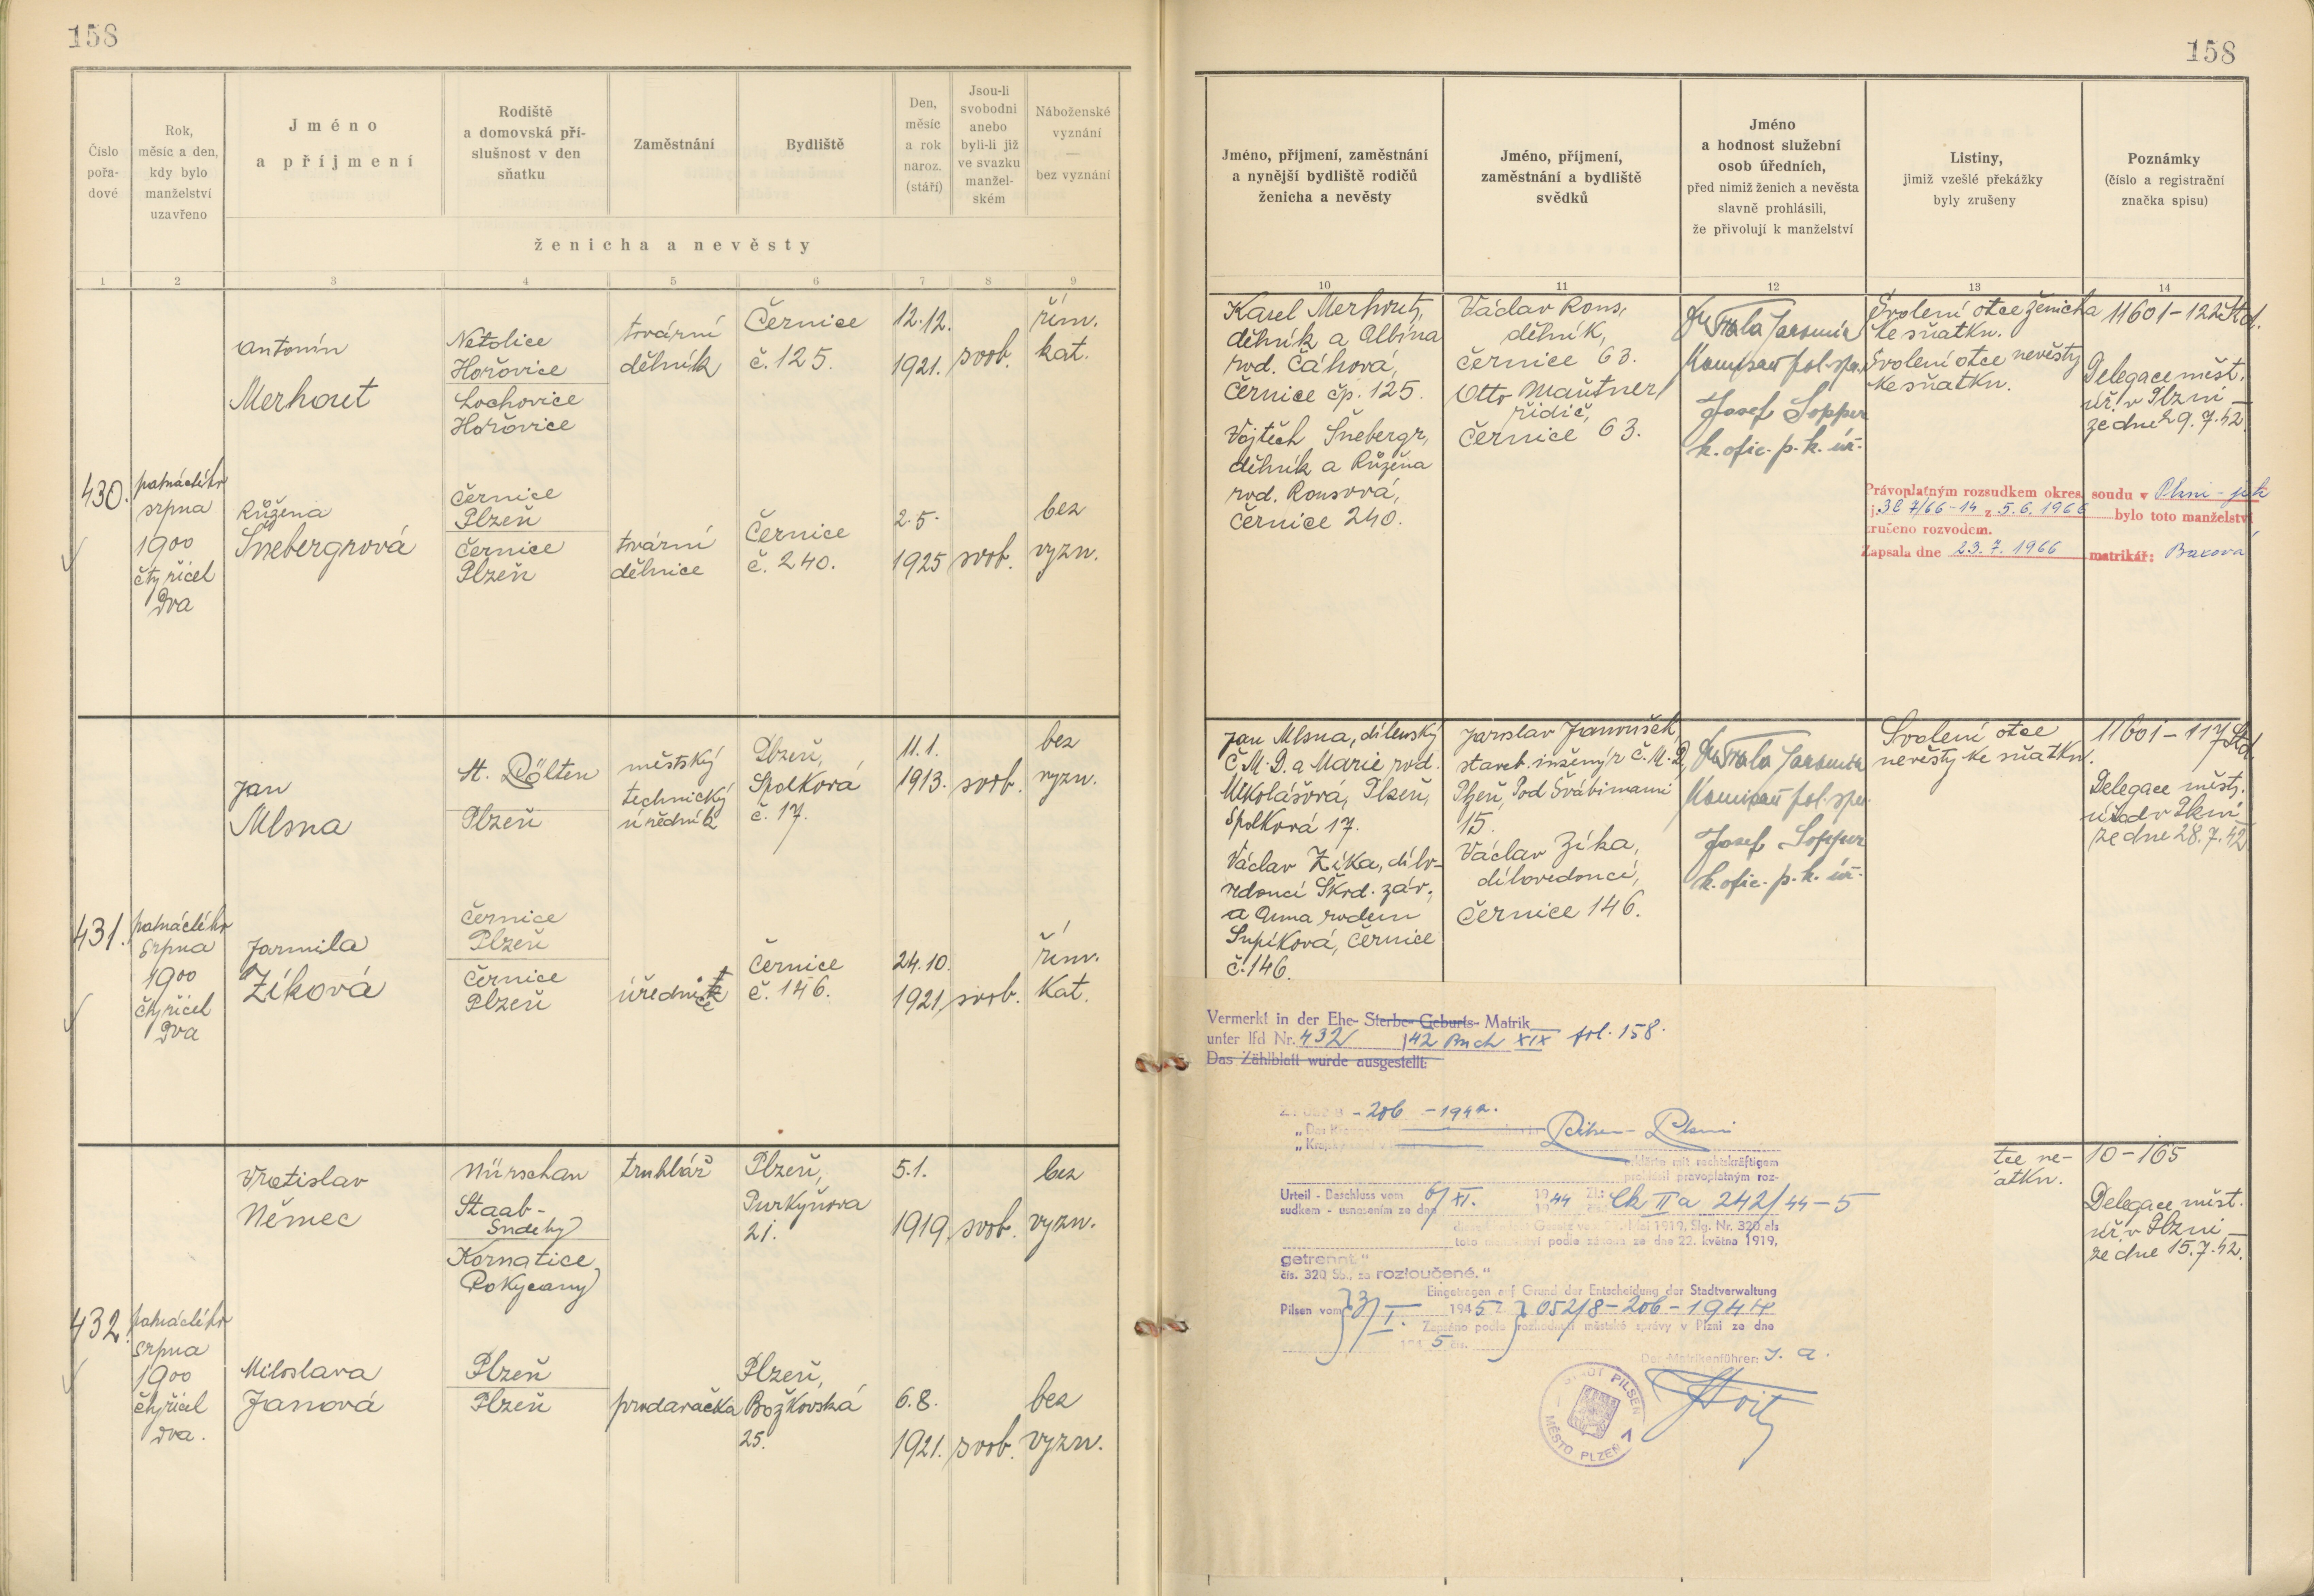 158
Číslo
pořa-
dové
Rok,
měsíc a den,
kdy bylo
manželství
uzavřeno
Jméno
a příjmení
Rodiště
a domovská pří-
slušnost v den
sňatku
Zaměstnání
Bydliště
Den,
měsíc
a rok
naroz.
(stáří)
Jsou-li
svobodni
anebo
byli-li již
ve svazku
manžel-
ském
Náboženské
vyznání
—
bez vyznání
ženicha a nevěsty
1 2 3 4 5 6 7 8 9
430.
patnáctého
srpna
1900
čtyřicet
dva
Antonín
Merhout
Netolice
Hořovice
Lochovice
Hořovice
tovární
dělník
Černice
č. 125.
12.12.
1921.
svob.
řím.
kat.
Růžena
Šnebergrová
Černice
Plzeň
Černice
Plzeň
tovární
dělnice
Černice
č. 240.
2.5.
1925
svob.
bez
vyzn.
431.
patnáctého
srpna
1900
čtyřicet
dva
Jan
Mlsna
St. Pölten
Plzeň
městský
technický
úředník
Plzeň,
Spolková
č. 17.
11.1.
1913.
svob.
bez
vyzn.
Jarmila
Zíková
Černice
Plzeň
Černice
Plzeň
Černice
č. 146.
24.10.
1921
svob.
řím.
Kat.
432.
patnáctého
srpna
1900
čtyřicet
dva.
Vratislav
Němec
Nürschan
Staab-
Sudety
Kornatice,
Rokycany
truhlář
Plzeň,
Purkyňova
21.
5.1.
1919.
svob.
bez
vyzn.
Miloslava
Janová
Plzeň
Plzeň
prodavačka
Plzeň,
Božkovská
25.
6.8.
1921.
svob.
bez
vyzn.
158
Jméno, příjmení, zaměstnání
a nynější bydliště rodičů
ženicha a nevěsty
Jméno, příjmení,
zaměstnání a bydliště
svědků
Jméno
a hodnost služební
osob úředních,
před nimiž ženich a nevěsta
slavně prohlásili,
že přivolují k manželství
Listiny,
jimiž vzešlé překážky
byly zrušeny
Poznámky
(číslo a registrační
značka spisu)
10 11 12 13 14
Karel Merhout,
dělník a Albína
rod. Čáhová,
Černice čp. 125.
Vojtěch Šnebergr,
dělník a Růžena
rod. Rousová,
Černice 240.
Václav Rous,
dělník,
Černice 63.
Otto Mautner,
řidič,
Černice 63.
Josef Sopper
k. ofic. p. k. úř.
Svolení otce ženicha
ke sňatku.
Svolení otce nevěsty
ke sňatku.
11601-122
Delegace měst.
úř. v Plzni
ze dne 29.7.42
Právoplatným rozsudkem okres. soudu v Plzni
z 5.6.1966 bylo toto manželství
zrušeno rozvodem.
Zapsala dne 23.7.1966 matrikář:
Jan Mlsna, dílenský
Č.M.D. a Marie rod.
Mikolášová, Plzeň,
Spolková 17.
Václav Zíka, dílo-
vedoucí Škod. záv.,
a Anna rodem
Supíková, Černice
č. 146.
Jaroslav Janoušek,
staveb. inženýr Č.M.D,
Plzeň, Pod Švábinami
15.
Václav Zíka,
dílovedoucí,
Černice 146.
Josef Sopper
k. ofic. p. k. úř.
Svolení otce
nevěsty ke sňatku.
11601-117
Delegace měst.
úřadu v Plzni
ze dne 28.7.42
Vermerkt in der Ehe- Sterbe- Geburts- Matrik
unter lfd Nr. 432 /42 Buch XIX fol. 158.
Das Zählblatt wurde ausgestellt:
-206 -1944.
Pilsen- Plzni
erklärte mit rechtskräftigem
prohlásil pravoplatným roz-
Urteil - Beschluss vom 6/XI. 1944 Zl: Ck IIa 242/44-5
sudkem - usnesením ze dne
Gesetz vom Mai 1919, Slg. Nr. 320 als
toto manželství podle zákona ze dne 22. května 1919,
getrennt."
čís. 320 Sb., za rozloučené."
Eingetragen auf Grund der Entscheidung der Stadtverwaltung
Pilsen vom 3/I. 1945 Z. 052/8-206-1944
Zapsáno podle rozhodnutí městské správy v Plzni ze dne
Der Matrikenführer: J. A.
STADT PILSEN
MĚSTO PLZEŇ
tce ne-
átku.
10-165
Delegace měst.
úř. v Plzni
ze dne 15.7.42.